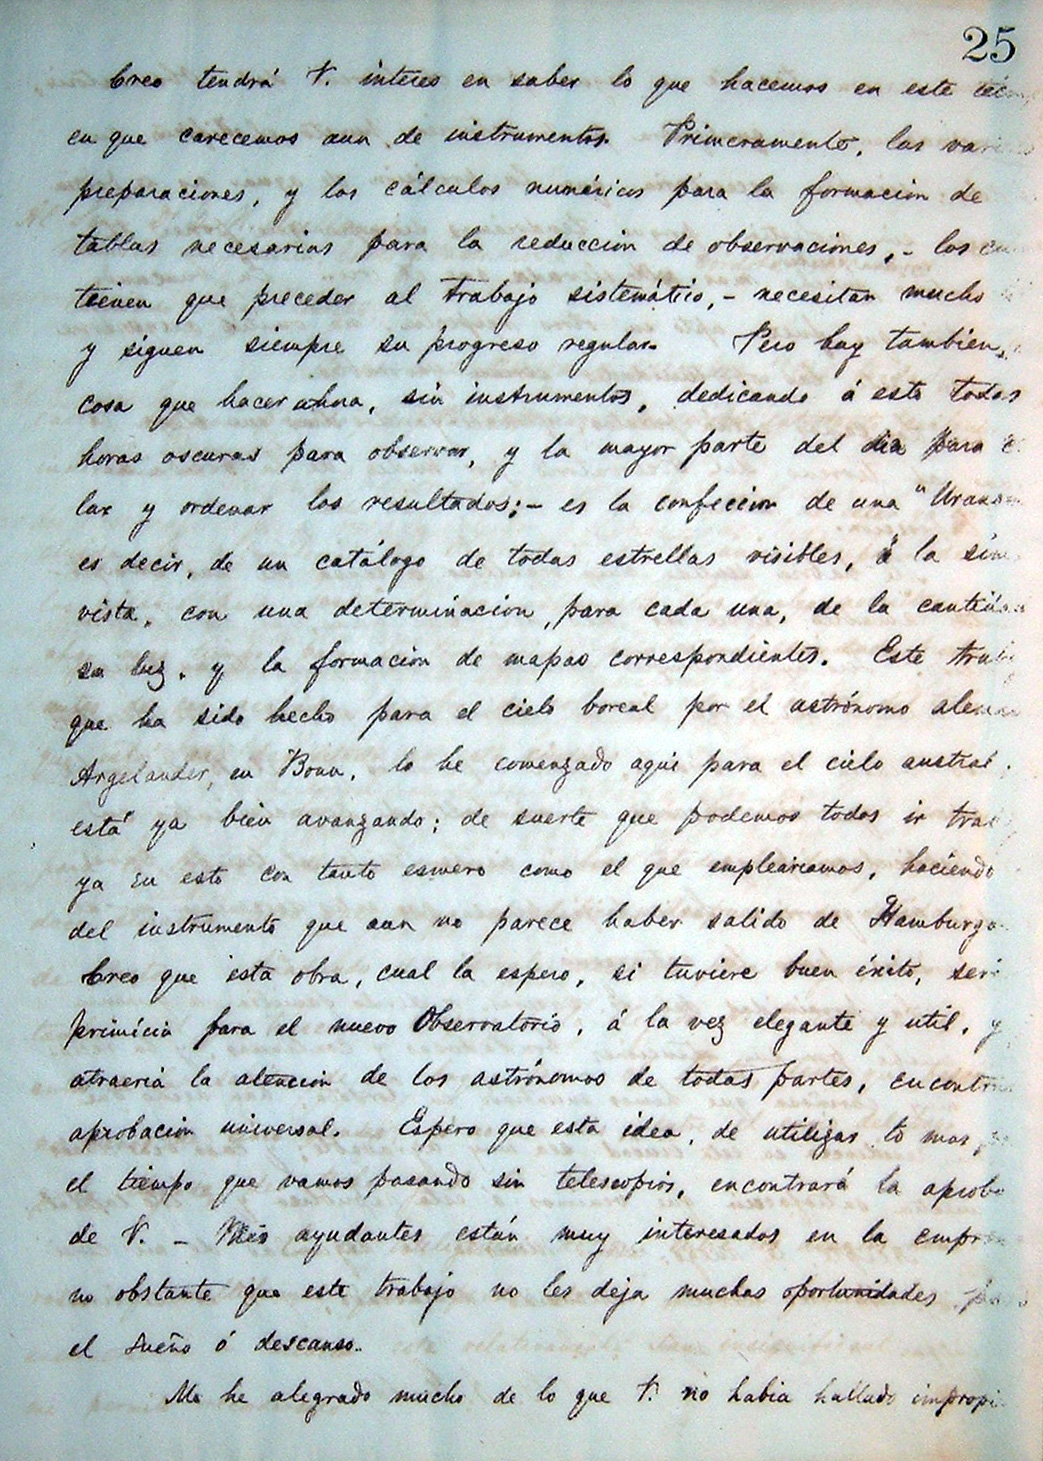 25
Creo tendrá V. interes en saber lo que hacemos en este
en que carecemos aun de instrumentos. Primeramente, las
preparaciones, y los cálculos numéricos para la formacion de
tablas necesarias para la reduccion de observaciones, - los
tienen que preceder al trabajo sistemático, - necesitan mucho
y siguen siempre su progreso regular. Pero hay tambien,
cosa que hacer ahora, sin instrumentos, dedicando á esto todas
horas oscuras para observar, y la mayor parte del dia para
lar y ordenar los resultados; - es la confeccion de una "
es decir, de un catálogo de todas estrellas visibles, á la
vista, con una determinacion, para cada una, de la
su luz, y la formacion de mapas correspondientes. Este
que ha sido hecho para el cielo boreal por el astrónomo
Argelander, en Bonn, lo he comenzado aqui para el cielo austral.
está ya bien avanzando; de suerte que podemos todos ir
ya en esto con tanto esmero como el que emplearíamos, haciendo
del instrumento que aun no parece haber salido de Hamburgo.
Creo que esta obra, cual la espero, si tuviere buen éxito,
primicia para el nuevo Observatorio, á la vez elegante y util, y
atraeria la atencion de los astrónomos de todas partes,
aprobacion universal. Espero que esta idea, de utilizar lo mas
el tiempo que vamos pasando sin telescopios, encontrará la
de V. - Mis ayudantes están muy interesados en la
no obstante que este trabajo no les deja muchas oportunidades
el sueño ó descanso.
Me he alegrado mucho de lo que V. no habia hallado